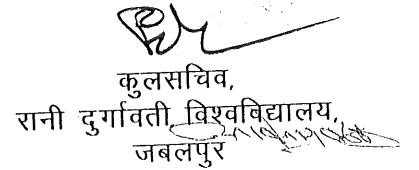 कुलसचिव,
रानी दुर्गावती, विश्वविद्यालय,
जबलपुर